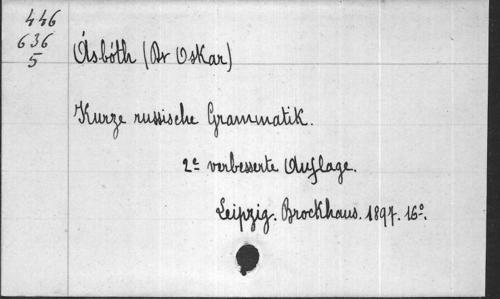 446
636
5
Ásbóth (Dr Oskar)
Kurze russische Grammatik.
2e verbesserte Auflage.
Leipzig. Brockhaus. 1897. 16°.